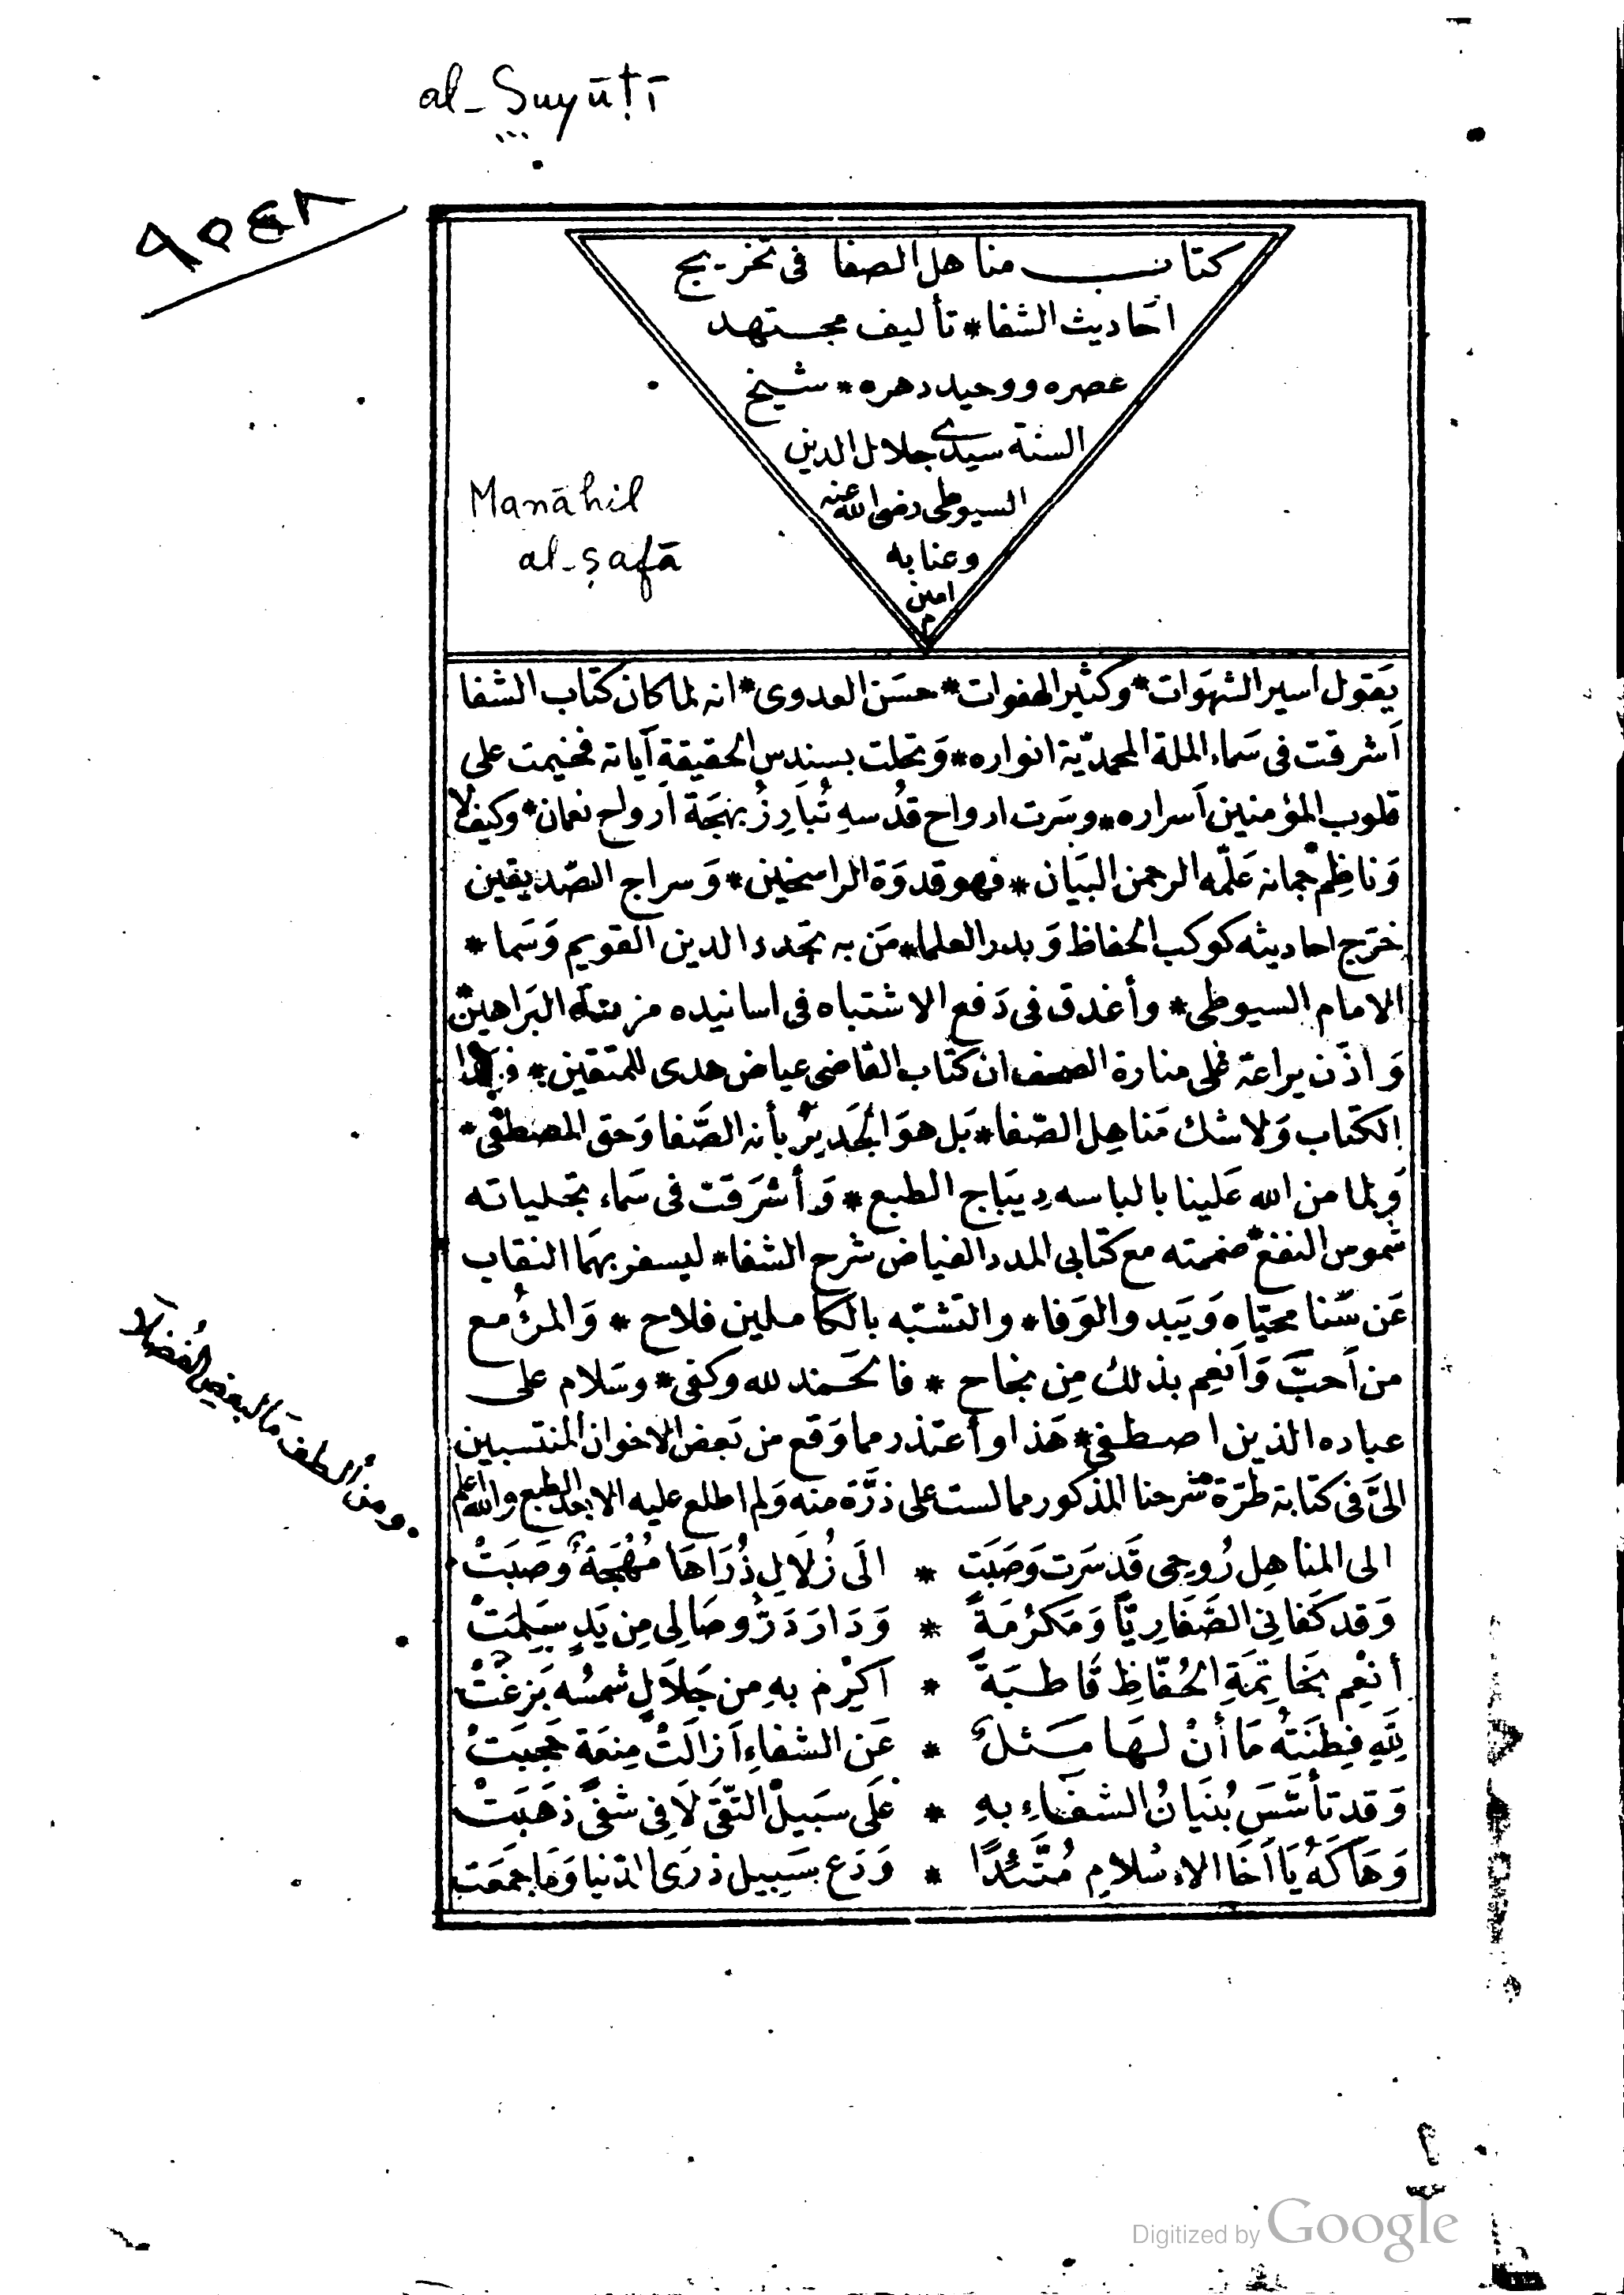 al-Suyūṭī
٩٥٤٨
كتاب مناهل الصفا في تخريج
احاديث الشفا * تأليف مجتهد
عصره ووحيد دهره * شيخ
السنة سيدى جلال الدين
السيوطى رضى الله عنه
وعنا به
امين
م
Manāhil
al-ṣafā
يَقول اسير الشهَوات * وكثير الهفوات * حسَن العدوى * انه لما كان كتاب الشفا
أشرقت فى سَماء الملة المحمديّة انواره * وَتحلت بسندس الحقيقة آياته فخيمت على
قلوب المؤمنين أسراره * وسَرت ارواح قدُسهِ تُبَارِزُ بهَجَة أرواح نعمان * وكيف لا
وَناظِم جمانه عَلّمه الرحمن البيَان * فهو قدوَة الراسخين * وَسراج الصّديقين
خرّج احاديثه كوكب الحفاظ وَبدر العلما * مَن به تجدد الدين القويم وَسَما *
الامام السيوطى * وأغدق فى دَفع الاشتباه فى اسانيده مزنته البَراهين *
وَاذّن يراعه على منارة الصحف ان كتاب القاضى عياض هدى للمتقين * فهذا
الكتاب وَلاشك مَناهِل الصّفا * بَل هوَ الجَدير بأنه الصَّفا وَحق المصطفى *
وَلما من الله عَلينا بالباسه دِيبَاج الطبع * وَأشرَقت فى سَماء تجلياته
شموس النفع * ضممته مع كتابى المدد الفياض شرح الشفا * ليسفر بهمَا النقاب
عَن سَنا محيّاه وَيَبدو الوَفا * والتشبّه بالكاملين فلاح * وَالمرؤ مع
من أحبَّ وَأنعِم بذلك مِن نجاح * فالحَمد لله وكفى * وسَلام على
عباده الذين اصطفى * هَذا وأعتذر مما وَقع من بَعض الاخوان المنتسبين
الىَّ فى كتابة طرّة شرحنا المذكور مما لست على ذرَّة منه وَلم اطلع عليه الا بعد الطبع والله اعلم
ومن ألطف مَا لبعض الفُضَلا
الى المناهِل رُوحِى قَد سَرت وَصَبَت * الَى زُلَالِ ذُرَاهَا مُهْجَةٌ وَصَبَتْ
وَقد كَفانِى الصَّفَا رِيًّا وَمَكرُمَةً * وَدَار دَرُّ وصَالِى مِن يَدٍ سَلِمَتْ
أنعِم بخَاتِمَةِ الحُفّاظِ قَاطبَةً * اكرِم بهِ مِن جَلَالٍ شمسُه بَزغَتْ
لِلَّهِ فِطنَتُه مَا أنْ لهَا مَثلٌ * عَن الشفاءِ أزالَتْ مِنعَة حَجبَتْ
وَقد تأسَّسَ بُنيَانُ الشفَاءِ بهِ * عَلَى سَبيلِ التّقَى لَا فى شفًى ذهَبَتْ
وَهَاكَهُ يَا أخَا الاِسْلامِ مُتَّئدًا * وَدَع سَبِيل ذرَى الدّنيا وَمَا جَمَعَت
Digitized by Google